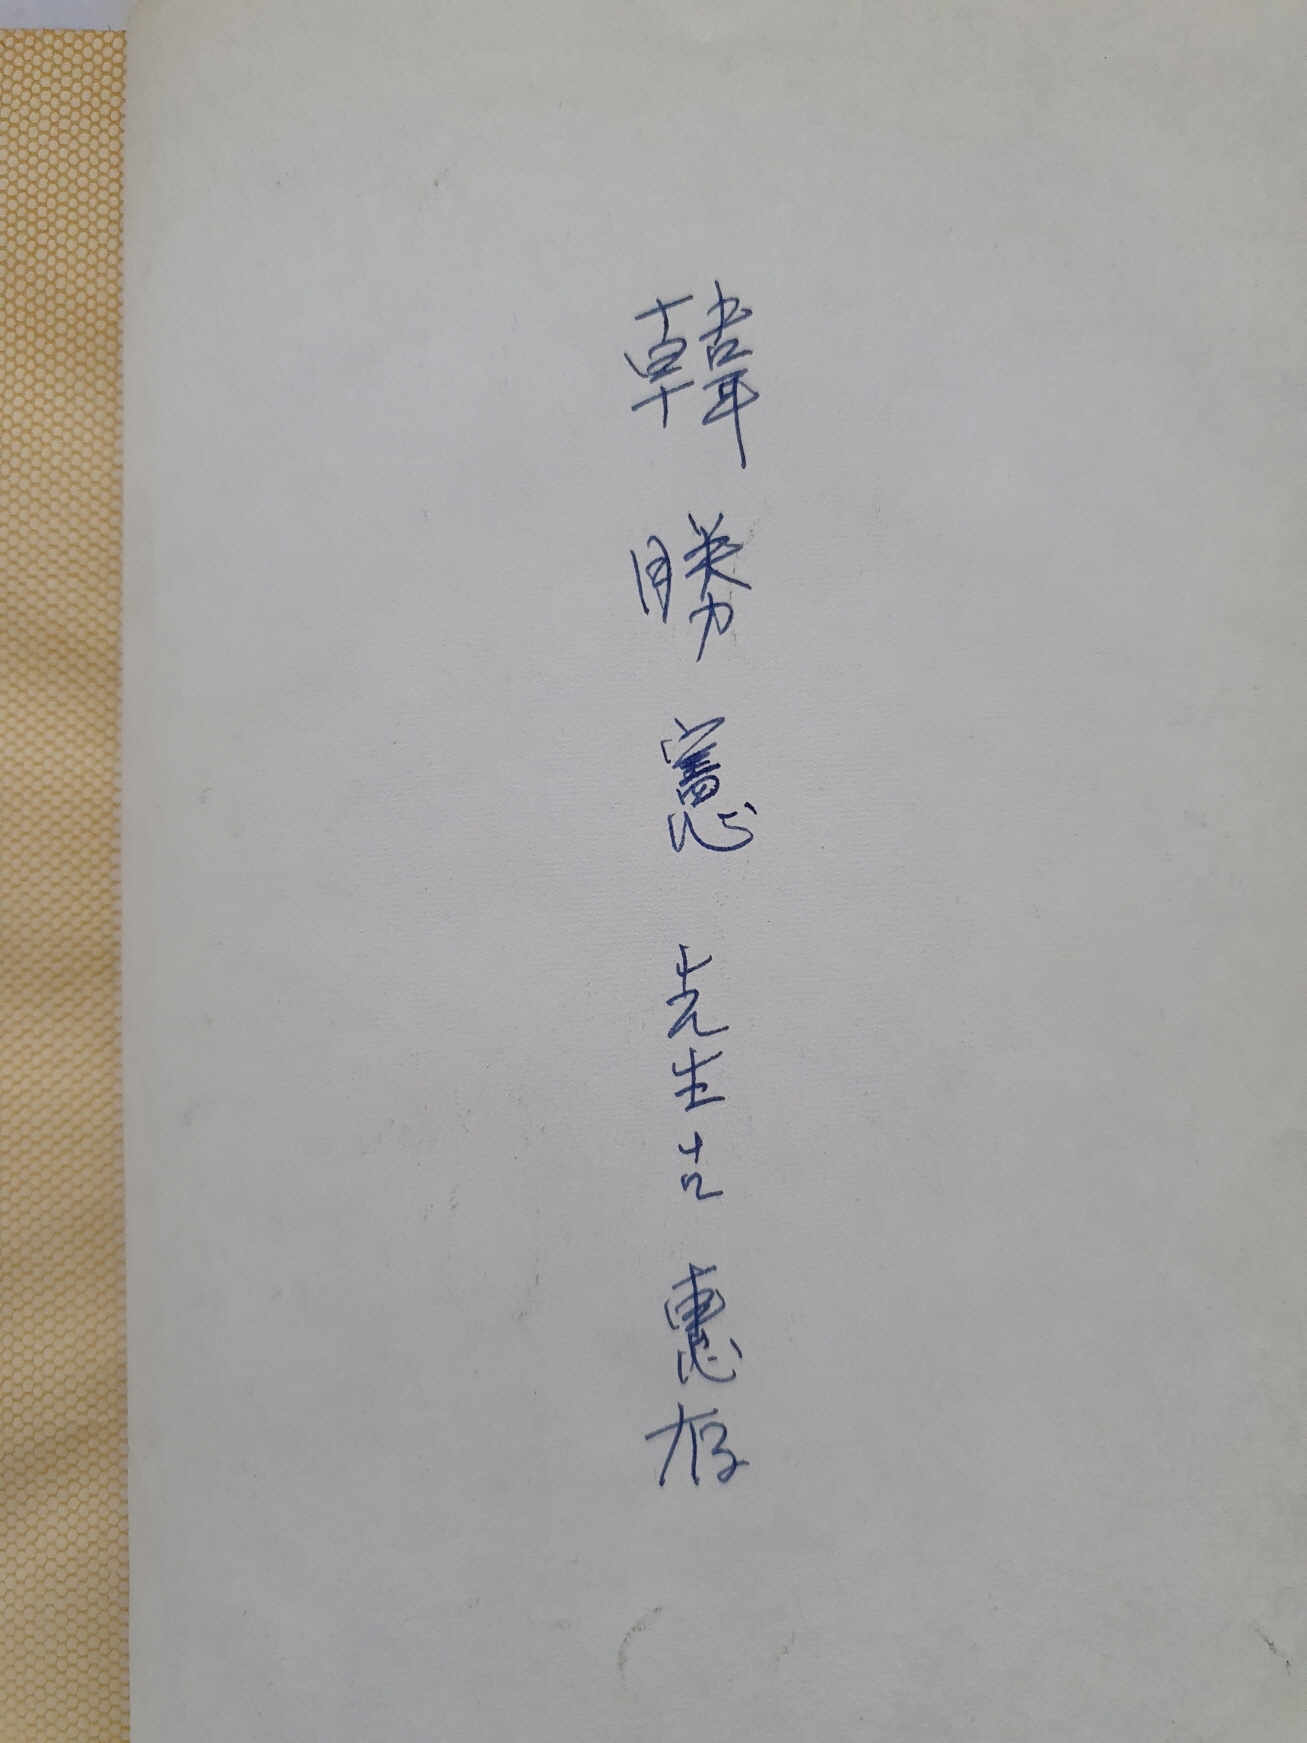 韓勝憲 先生님 惠存